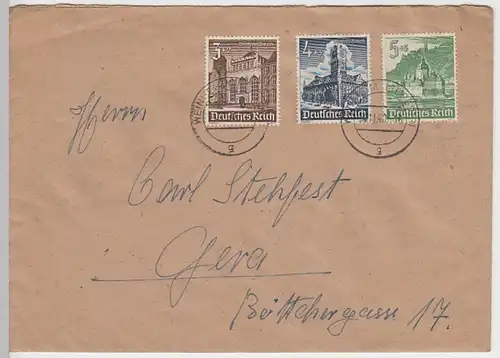 3+2 4+3 5+3
Deutsches Reich Deutsches Reich Deutsches Reich
g g
Herrn
Carl Stehfest
Gera
Böttchergasse 17.